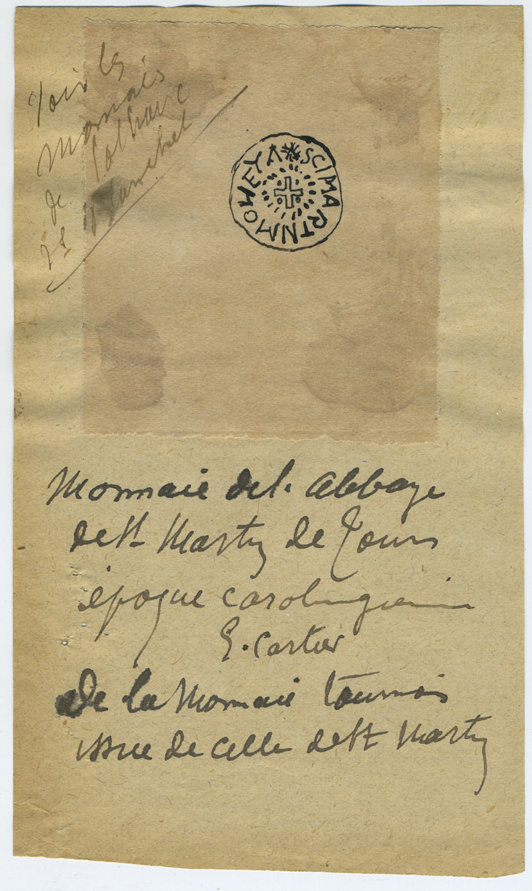 Voir les
monnaies
de
SCI MARTNMOHEYA
Monnaie de l. abbaye
de St Martin de Tours
époque carolingienne
E. Cartier
De la monnaie tournois
issue de celle de St Martin